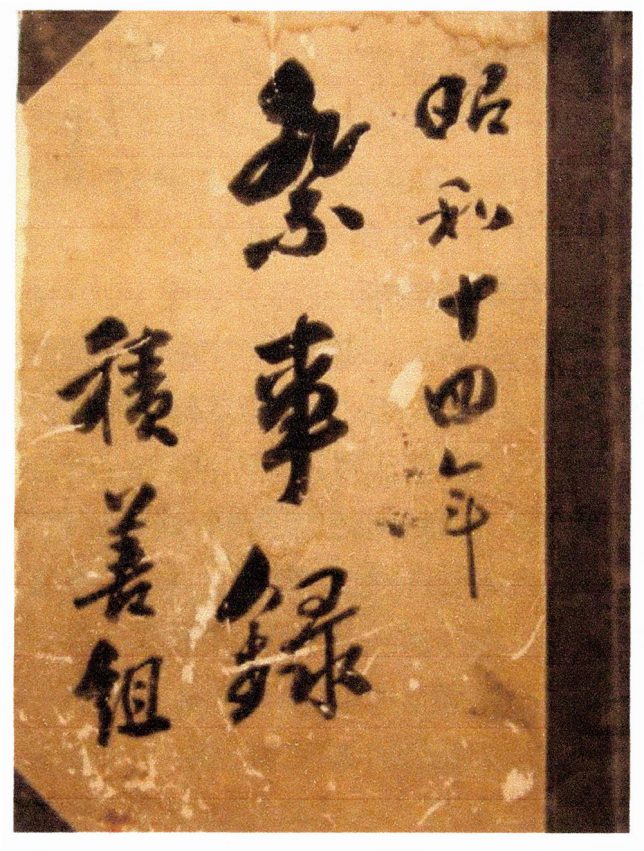 昭和十四年
祭事録
積善組